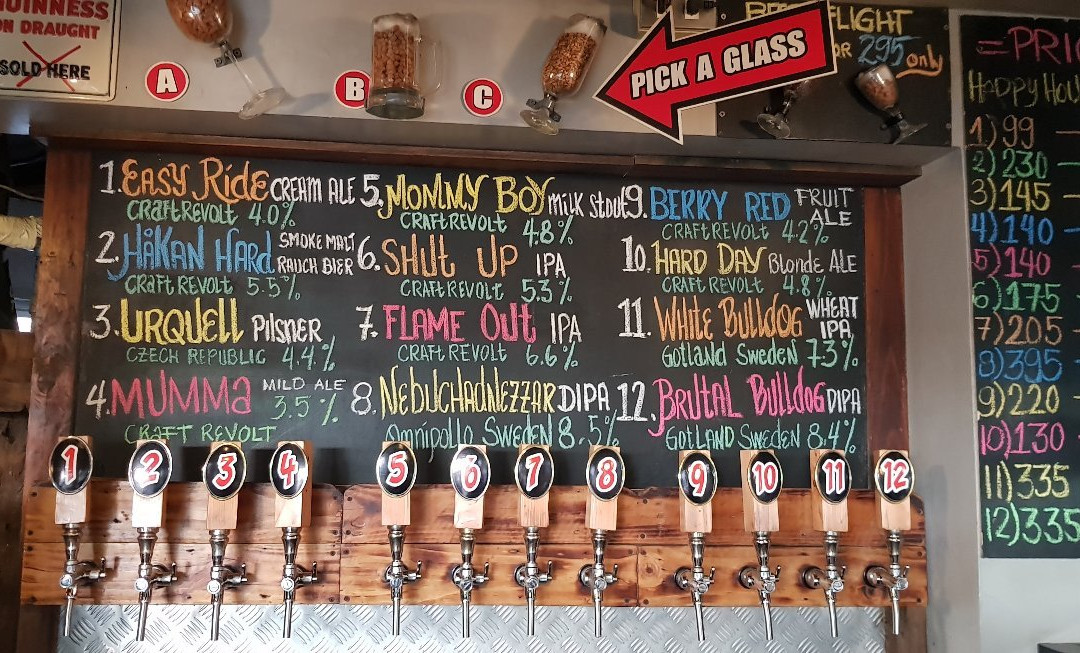 GUINNESS
ON DRAUGHT
SOLD HERE
A
B
C
PICK A GLASS
FLIGHT
295 only
1. EASY RiDE CREAM ALE
CRAFT REVOLT 4.0%
2. HÅKAN HARD SMOKE MALT
RAUCH BIER
CRAFT REVOLT 5.5%
3. URQUELL PiLSNER
CZECH REPUBLIC 4.4%
4. MUMMA MILD ALE
3.5%
CRAFT REVOLT
5. MOMMY BOY MiLK StOUt
CRAFT REVOLT 4.8%
6. SHUt UP IPA
CRAFT REVOLT 5.3%
7. FLAME OUt IPA
CRAFT REVOLT 6.6%
8. NEBUCHADNEZZAR DIPA
Omnipollo SWEDEN 8.5%
9. BERRY RED FRUIT
ALE
CRAFT REVOLT 4.2%
10. HARD DAY Blonde ALE
CRAFT REVOLT 4.8%
11. WHITE BULLDOG WHEAT
IPA
GOtLAND SWEDEN 7.3%
12. BRUTAL BULLDOG DIPA
GOTLAND SWEDEN 8.4%
1
2
3
4
5
6
7
8
9
10
11
12
HAPPY
1) 99
2) 230
3) 145
4) 140
5) 140
6) 175
7) 205
8) 395
9) 220
10) 130
11) 335
12) 335